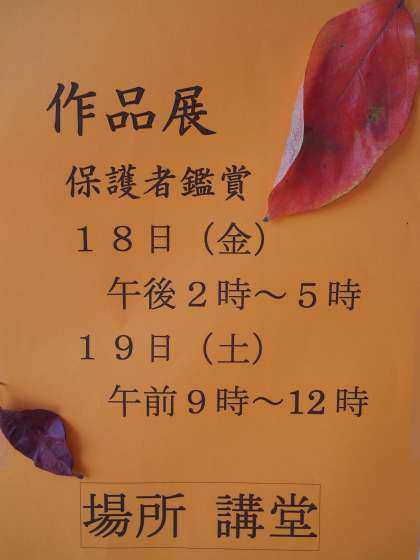 作品展
保護者鑑賞
１８日（金）
午後２時～５時
１９日（土）
午前９時～12時
場所 講堂